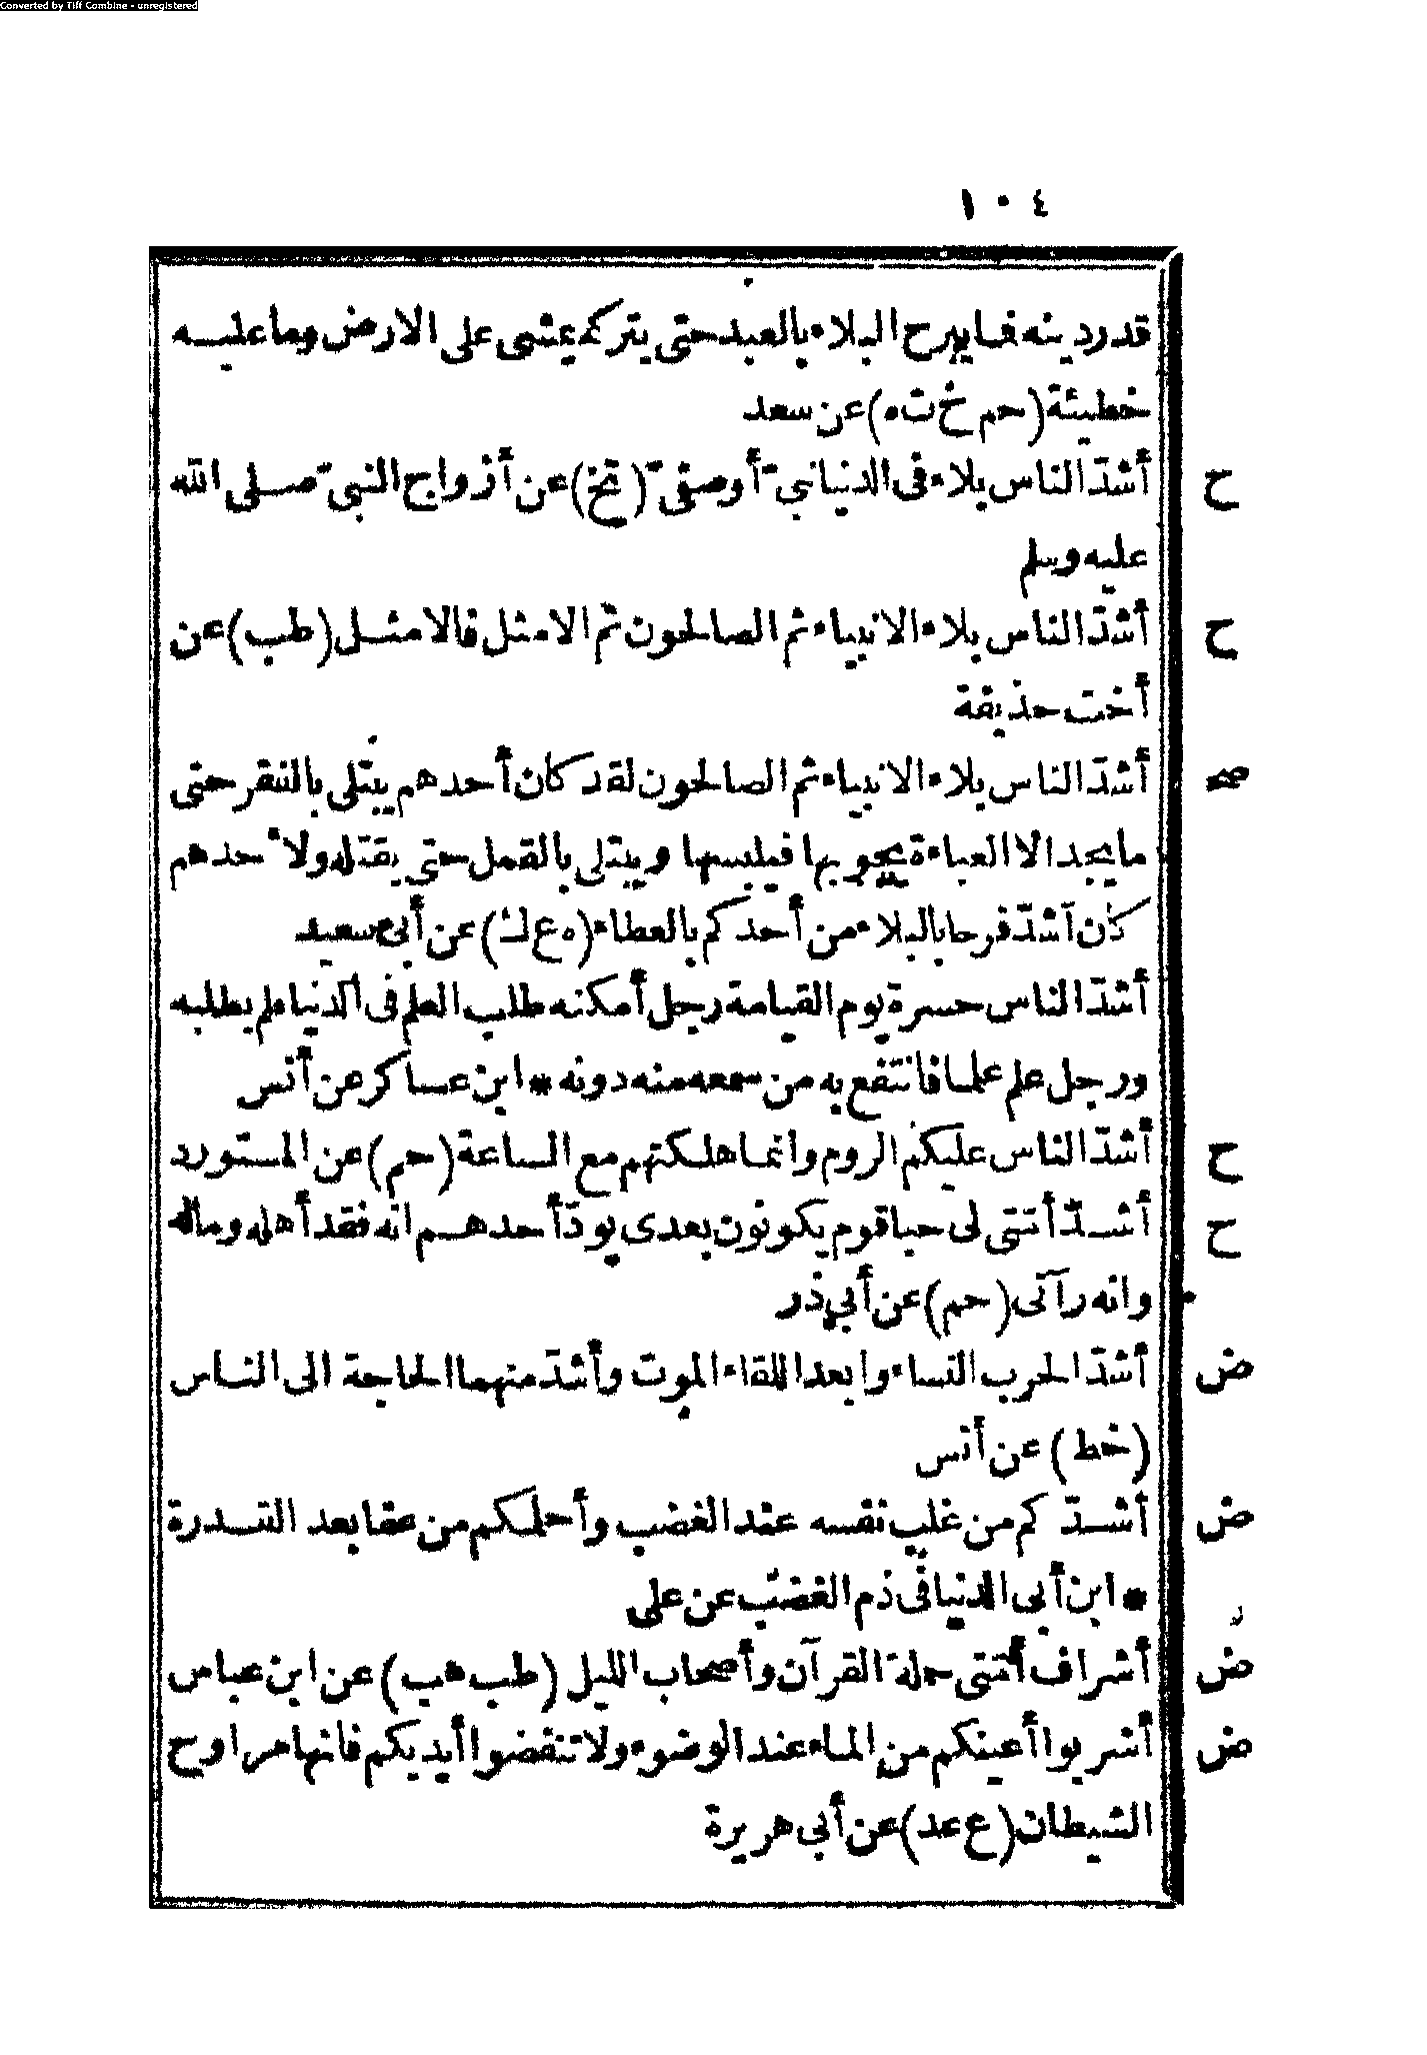 Converted by Tiff Combine - unregistered
١٠٤
قدر دينه فما يبرح البلاء بالعبد حتى يتركه يمشى على الارض وما عليه
خطيئة (حم خ ت ه) عن سعد
ح أشدّ الناس بلاء فى الدنيا نبيّ أو صفىّ (تخ) عن أزواج النبىّ صلى الله
عليه وسلم
ح أشدّ الناس بلاء الانبياء ثم الصالحون ثم الامثل فالامثل (طب) عن
أخت حذيفة
صح أشدّ الناس بلاء الانبياء ثم الصالحون لقد كان أحدهم يبتلى بالفقر حتى
ما يجد الا العباءة يجوبها فيلبسها ويبتلى بالقمل حتى يقتله ولأحدهم
كان أشدّ فرحا بالبلاء من أحدكم بالعطاء (ه ع ك) عن أبى سعيد
أشدّ الناس حسرة يوم القيامة رجل أمكنه طلب العلم فى الدنيا فلم يطلبه
ورجل علم علما فانتفع به من سمعه منه دونه * ابن عساكر عن أنس
ح أشدّ الناس عليكم الروم وانما هلكتهم مع الساعة (حم) عن المستورد
ح أشدّ أمتى لى حبا قوم يكونون بعدى يودّ أحدهم انه فقد أهله وماله
وانه رآنى (حم) عن أبي ذر
ض أشدّ الحرب النساء وابعد اللقاء الموت وأشدّ منهما الحاجة الى الناس
(خط) عن أنس
ض أشدّكم من غلب نفسه عند الغضب وأحلمكم من عفا بعد القدرة
* ابن أبى الدنيا فى ذم الغضب عن على
ض أشراف أمّتى حملة القرآن وأصحاب الليل (طب هب) عن ابن عباس
ض أشربوا أعينكم من الماء عند الوضوء ولا تنفضوا أيديكم فانها مراوح
الشيطان (ع عد) عن أبى هريرة